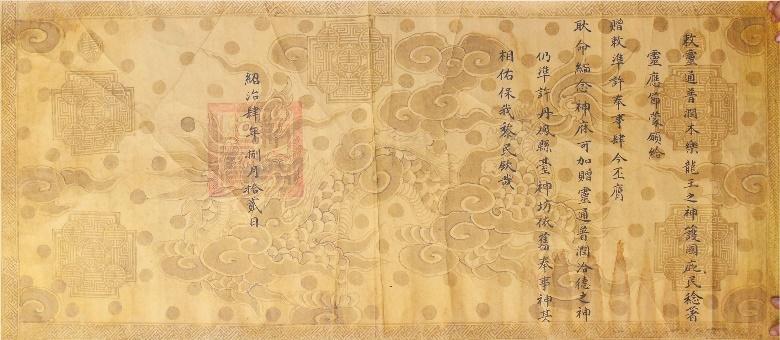 敕靈通普潤木樂龍王之神護國庇民稔著
靈應節蒙頒給
贈敕準許奉事肆今丕膺
耿命緬念神庥可加贈靈通普潤洽德之神
仍準許丹鳳縣臺神坊依舊奉事神其
相佑保我黎民欽哉
紹治肆年捌月拾貳日